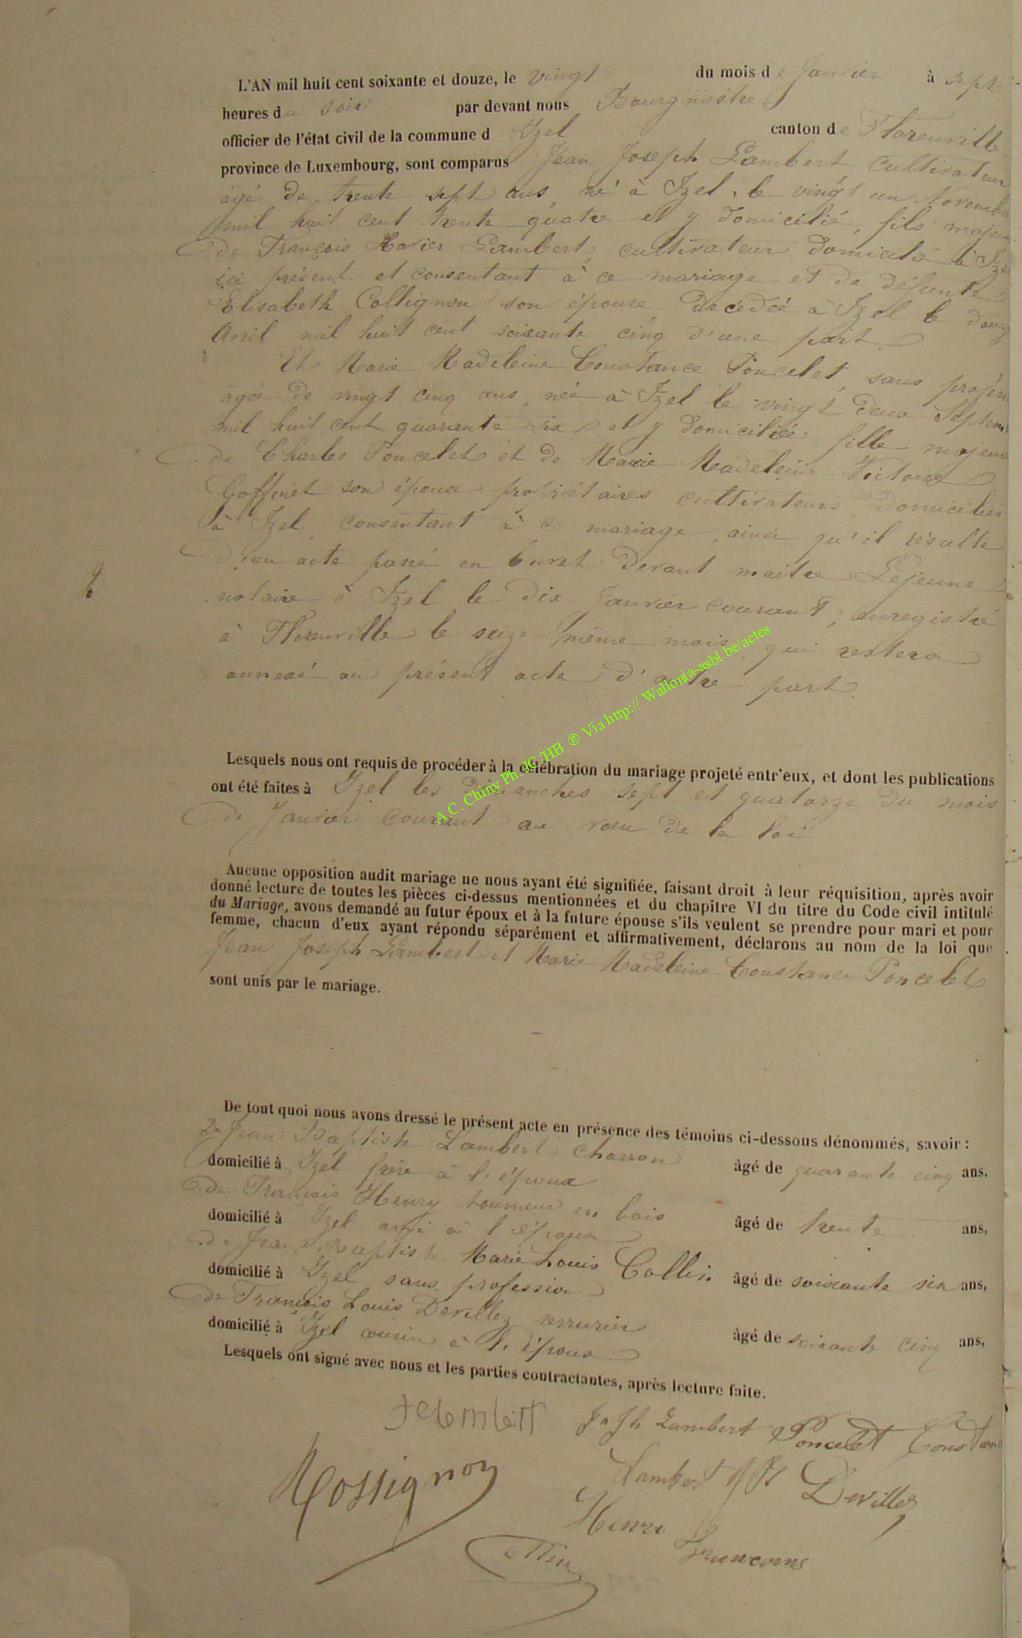 L'AN mil huit cent soixante et douze, le vingt du mois de Janvier à sept
heures du soir par devant nous Bourgmestre
officier de l'état civil de la commune d Izel canton de Florenville
province de Luxembourg, sont comparus Jean Joseph Lambert cultivateur
âgé de trente sept ans, né à Izel le vingt un Novembre
mil huit cent trente quatre et y domicilié, fils majeur
de François Xavier Lambert, cultivateur domicilié à Izel
ici présent et consentant à ce mariage et de défunte
Elisabeth Collignon son épouse décédée à Izel le douze
Avril mil huit cent soixante cinq d'une part.
Et Marie Madeleine Constance Poncelet, sans profession
âgée de vingt cinq ans, née à Izel le vingt deux Septem
mil huit cent quarante six et y domiciliée fille majeure
de Charles Poncelet et de Marie Madeleine Victoire
Goffinet son épouse propriétaires cultivateurs domiciliés
à Izel, consentant à ce mariage, ainsi qu'il résulte
d'un acte passé en brevet devant maitre Lejeune
notaire à Izel le dix Janvier courant, enregistré
à Florenville le seize même mois qui restera
annexé au présent acte d'autre part.
A.C. Chiny Ph JG/HB ® Via http:// Wallonia-asbl.be/actes
Lesquels nous ont requis de procéder à la célébration du mariage projeté entr'eux, et dont les publications
ont été faites à Izel les Dimanches sept et quatorze du mois
de Janvier courant au vœu de la loi
Aucune opposition audit mariage ne nous ayant été signifiée, faisant droit à leur réquisition, après avoir
donné lecture de toutes les pièces ci-dessus mentionnées et du chapitre VI du titre du Code civil intitulé
du Mariage, avons demandé au futur époux et à la future épouse s'ils veulent se prendre pour mari et pour
femme, chacun d'eux ayant répondu séparément et affirmativement, déclarons au nom de la loi que
Jean Joseph Lambert et Marie Madeleine Constance Poncelet
sont unis par le mariage.
De tout quoi nous avons dressé le présent acte en présence des témoins ci-dessous dénommés, savoir :
De Jean Baptiste Lambert charron
domicilié à Izel frère à l'époux âgé de quarante cinq ans,
de François Henry tourneur en bois
domicilié à Izel ami à l'époux âgé de trente ans,
de Jean Baptiste Marie Louis Collin
domicilié à Izel sans profession âgé de soixante six ans,
de François Louis Devillez serrurier
domicilié à Izel cousin à l'époux âgé de soixante cinq ans,
Lesquels ont signé avec nous et les parties contractantes, après lecture faite.
Jph Lambert Poncelet Constance
Rossignon Lambert JB Devillez
Henri
Collin Francois